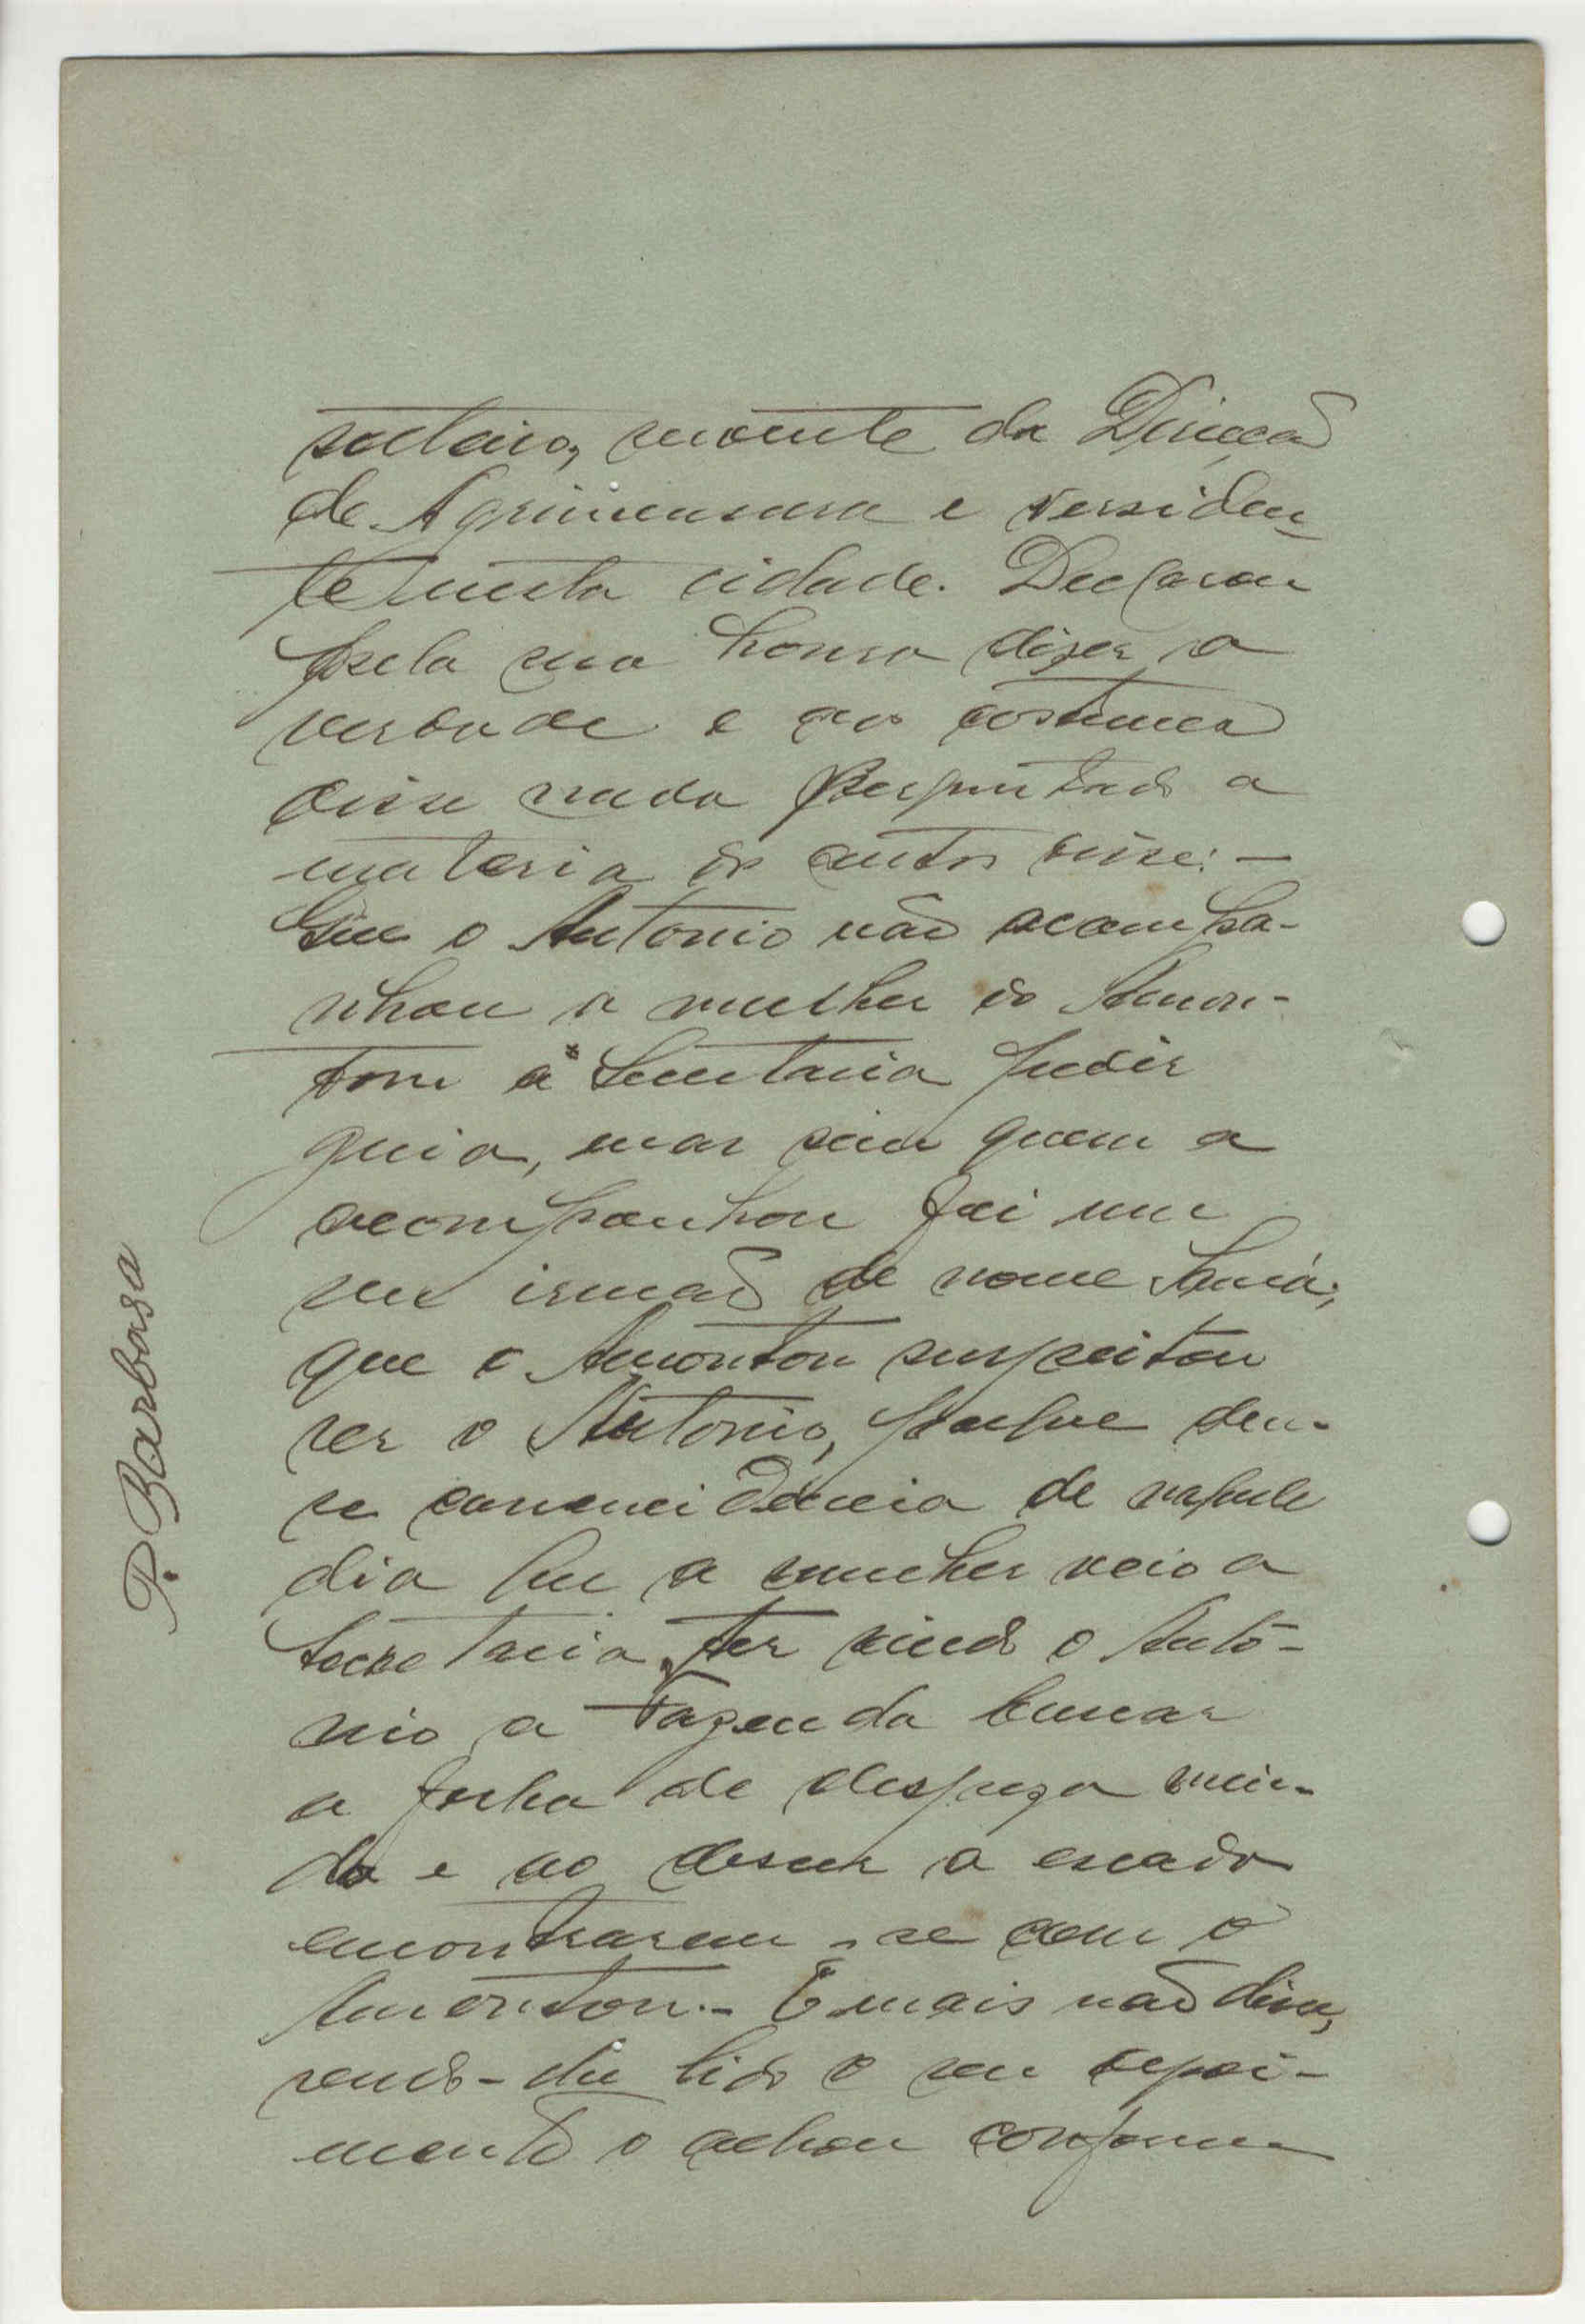 solteiro, servente da Direcção
de Agrimensura e residen-
te nesta cidade. Declarou
pela sua honra dizer a
verdade e aos costumes
disse nada Perguntado a
materia do autos disse: —
Que o Antonio não acompa-
nhou a mulher do Amon-
ton á Secretaria pedir
guia, mas sim quem a
acompanhou foi um
seu irmão de nome
que o Amonton suspeitou
ser o Antonio, porque deu-
se concncidencia de naquele
dia que a mulher veio a
Secretaria, ter vindo o Antó-
nio a Fazenda buscar
a folha de despeza
e ao descer a escada
encontraram-se com o
Amonton.- E mais não disse,
sendo-lhe lido o seu depoi-
mento o achou conforme
P. Barbosa